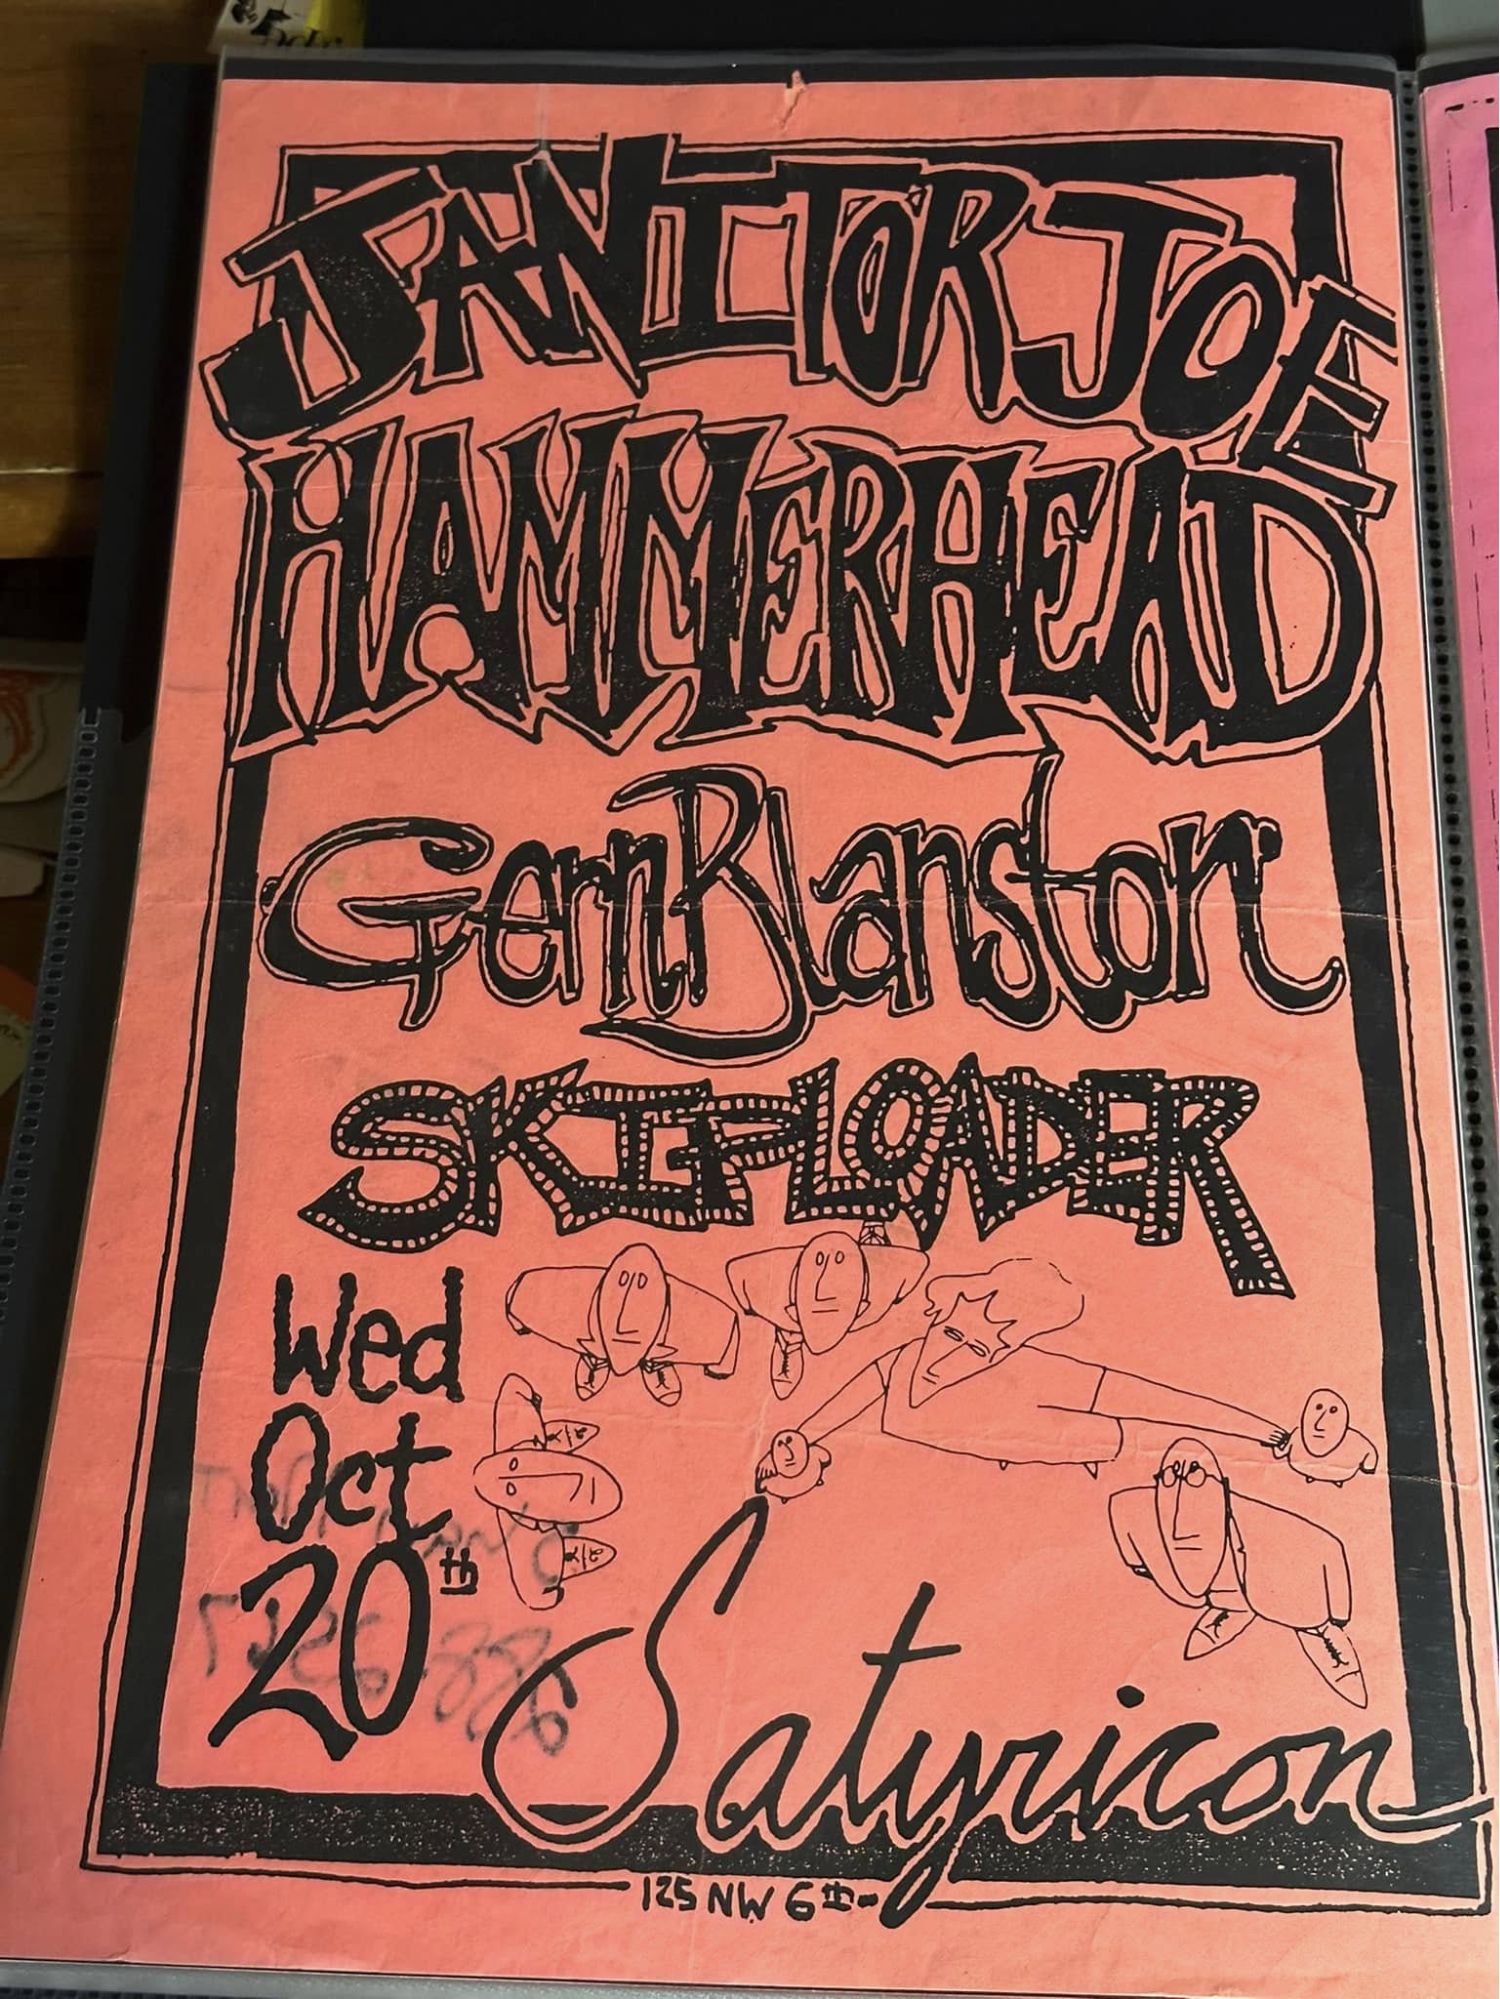 JANITOR JOE
HAMMERHEAD
Gern Blanston
SKIPLOADER
Wed
Oct
20th
Satyricon
125 NW 6th